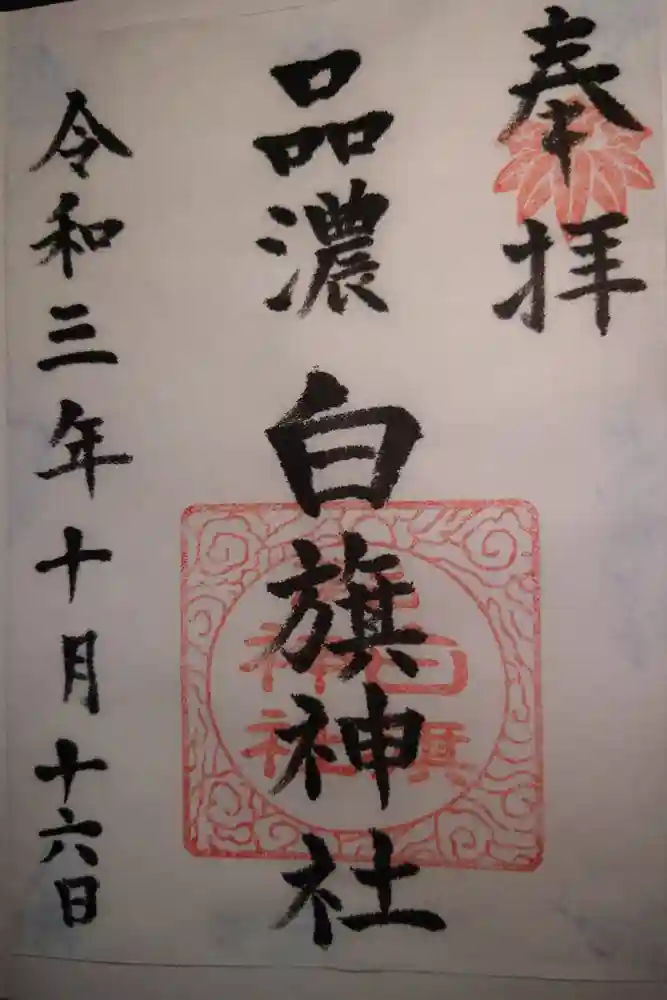 奉拝
品濃
白旗神社
令和三年十月十六日